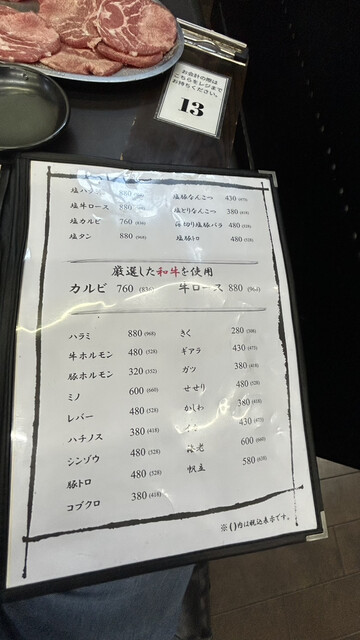 お会計の際は
こちらをレジまで
お持ちください。
13
塩ハラミ 880
塩牛ロース 880
塩カルビ 760 (836)
塩タン 880 (968)
塩豚なんこつ 430 (473)
塩とりなんこつ 380 (418)
厚切り塩豚バラ 480 (528)
塩豚トロ 480 (528)
厳選した和牛を使用
カルビ 760 (836) 牛ロース 880 (968)
ハラミ 880 (968)
牛ホルモン 480 (528)
豚ホルモン 320 (352)
ミノ 600 (660)
レバー 480 (528)
ハチノス 380 (418)
シンゾウ 480 (528)
豚トロ 480 (528)
コブクロ 380 (418)
きく 280 (308)
ギアラ 430 (473)
ガツ 380 (418)
せせり 480 (528)
かしわ 380 (418)
430 (473)
海老 600 (660)
帆立 580 (638)
※()内は税込表示です。